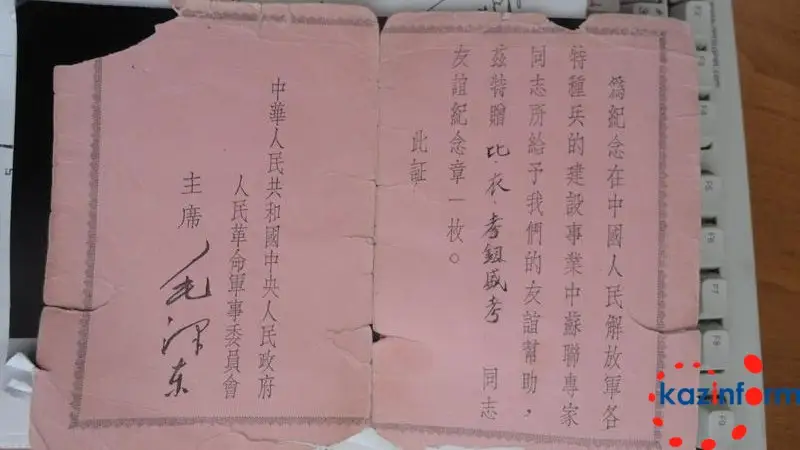 為紀念在中國人民解放軍各
特種兵的建設事業中蘇聯專家
同志所給予我們的友誼幫助，
茲特贈 比·衣·考鈕盛考 同志
友誼紀念章一枚。
此証
中華人民共和國中央人民政府
人民革命軍事委員會
主席 毛澤东
kazinform